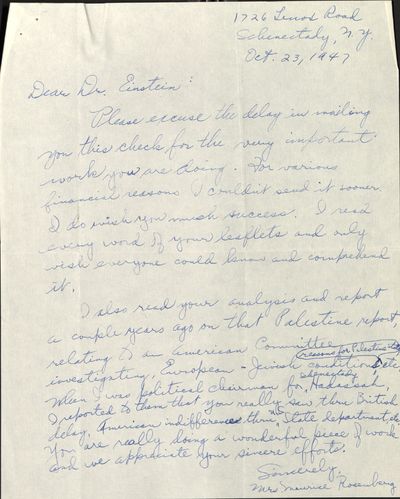 1726 Lenox Road
Schenectady, N.Y.
Oct. 23, 1947
Dear Dr. Einstein:
Please excuse the delay in mailing
you this check for the very important
work you are doing. For various
financial reasons I couldn't send it sooner.
I do wish you much success. I read
every word of your leaflets and only
wish everyone could know and comprehend
it.
I also read your analysis and report
a couple years ago on that Palestine report,
relating to an American Committee
investigating European-Jewish conditions etc.
reasons for Palestine
When I was political chairman for Schenectady Hadassah,
I reported to them that you really saw thru British
delay, American indifference thru State department, etc.
You are really doing a wonderful piece of work
and we appreciate your sincere efforts.
Sincerely,
Mrs Maurice Rosenberg